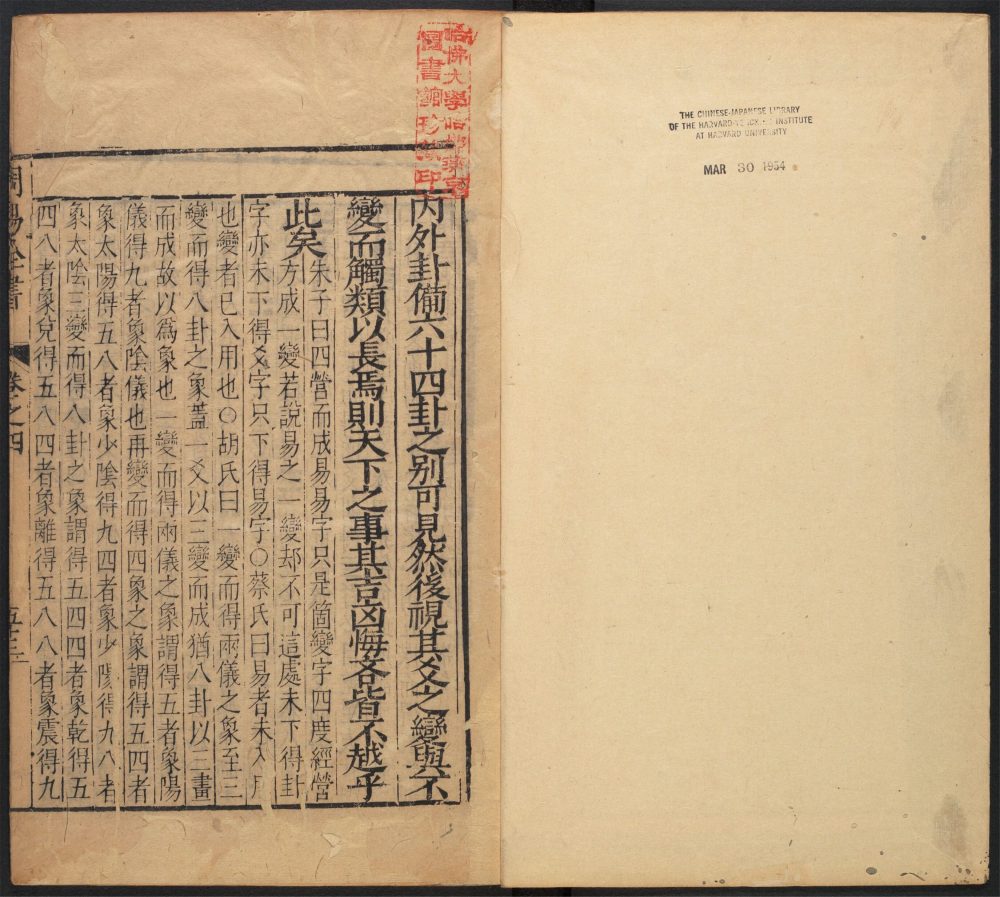 THE CHINESE-JAPANESE LIBRARY
OF THE HARVARD-YENCHING INSTITUTE
AT HARVARD UNIVERSITY
MAR 30 1954
哈佛大學哈佛燕京
圖書館珍藏印
內外卦備六十四卦之别可見然後視其爻之變與不
變而觸類以長焉則天下之事其吉凶悔吝皆不越乎
此矣
朱子曰四營而成易易字只是箇變字四度經營
方成一變若說易之一變却不可這處未下得卦
字亦未下得爻字只下得易字○蔡氏曰易者未入用
也變者已入用也○胡氏曰一變而得兩儀之象至三
變而得八卦之象蓋一爻以三變而成猶八卦以三畫
而成故以爲象也一變而得兩儀之象謂得五者象陽
儀得九者象陰儀也再變而得四象之象謂得五四者
象太陽得五八者象少陰得九四者象少陽得九八者
象太陰三變而得八卦之象謂得五四四者象乾得五
四八者象兌得五八四者象離得五八八者象震得九
周易全書
卷之四